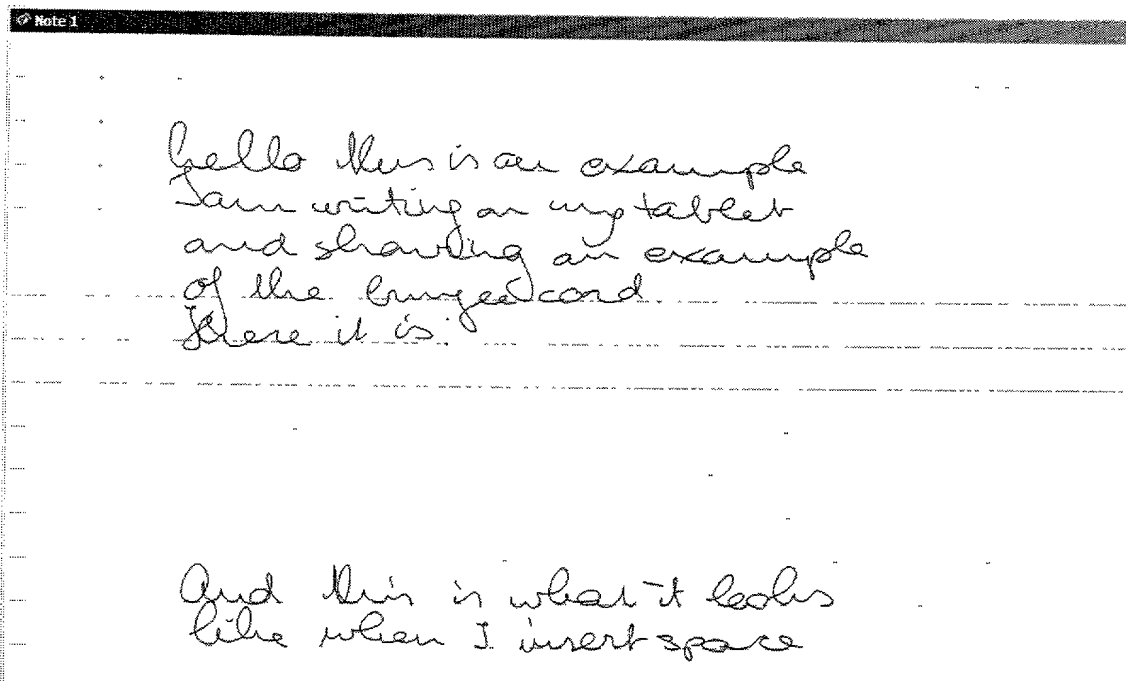 Note 1
hello this is an example
I am writing on my tablet
and showing an example
of the bungee cord
Here it is.
And this is what it looks
like when I insert space